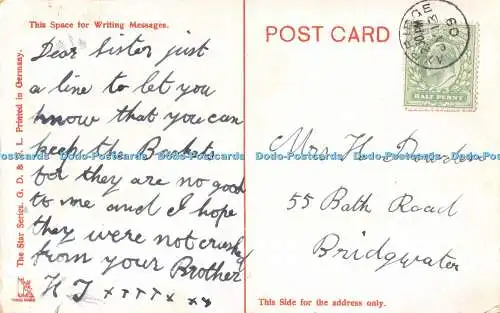 This Space for Writing Messages.
Dear Sister just
a line to let you
know that you can
keep the Basket
for they are no good
to me and I hope
they were not crushed
from your Brother
H J x x x x x x x
The Star Series. G. D. & D. L. Printed in Germany.
POST CARD
HALF PENNY
Mrs H
55 Bath Road
Bridgwater
This Side for the address only.
Dodo-Postcards Dodo-Postcards Dodo-Postcards Dodo-Postcards